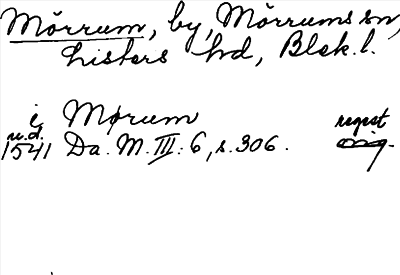 Mörrum, by, Mörrums sn,
Listers hd, Blek. l.
i Mørum regest
u.d. orig.
1541 Da. M. III: 6, s. 306.